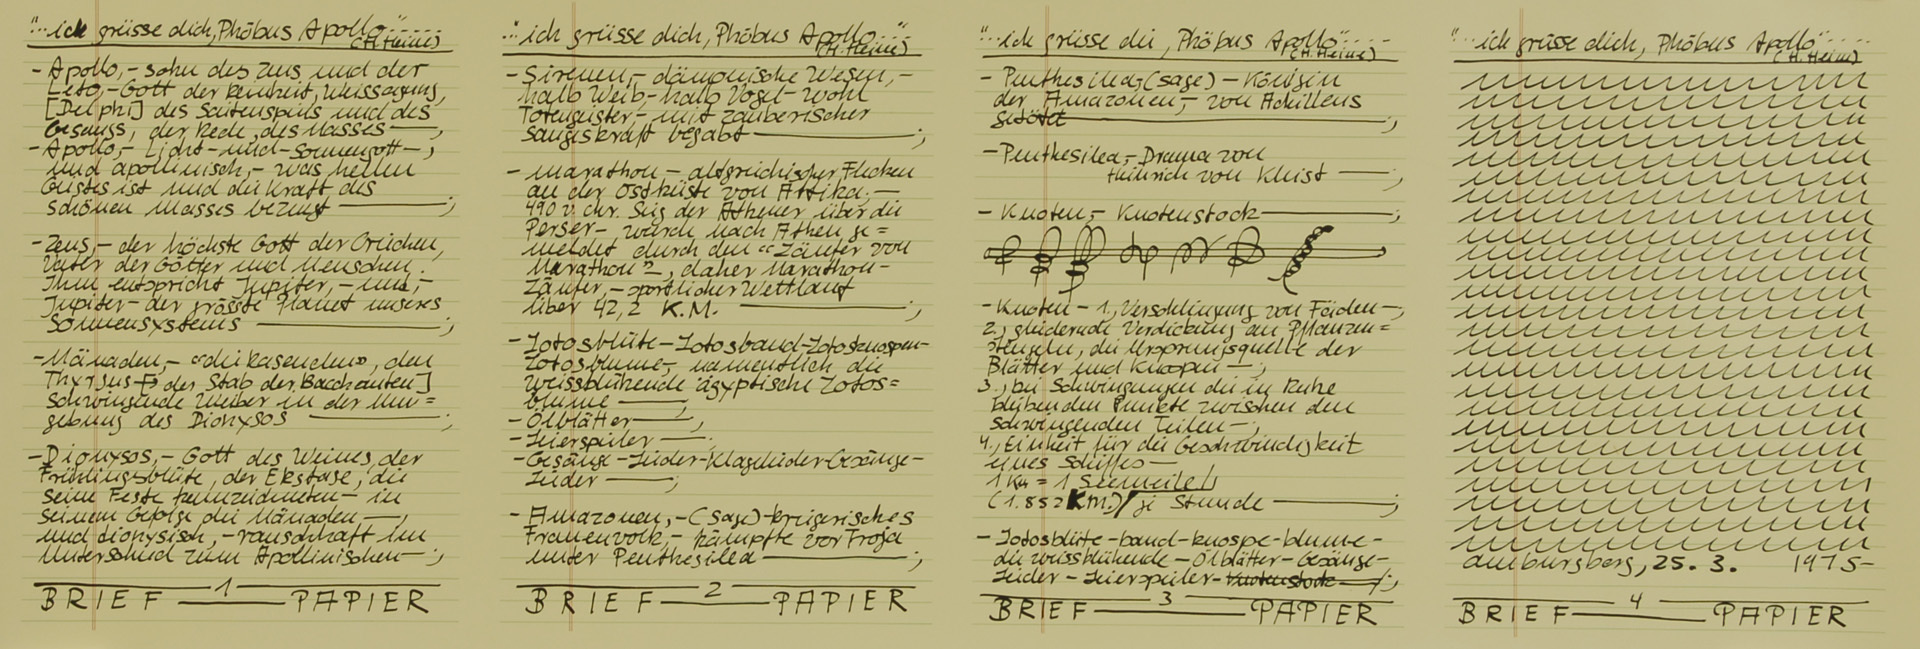 "...ich grüsse dich, Phöbus Apollo"....
(H. Heine)
- Apollo,- sohn des Zeus und der
Leto,- Gott der Reinheit, Weissagung,
[Delphi] des Saitenspiels und des
Gesangs, der Rede, des Masses —;
- Apollo,- Licht- und- Sonnengott -;
und apollinisch,- was hellen
Geistes ist und die Kraft des
schönen Masses bezeugt —;
- Zeus,- der höchste Gott der Griechen,
Vater der Götter und Menschen.
Ihm entspricht Jupiter,- und,-
Jupiter- der grösste Planet unseres
Sonnensystems —;
- Mänaden,- "die Rasenden", den
Thyrsus [der Stab der Bacchanten]
schwingende Weiber in der Um=
gebung des Dionysos —;
- Dionysos,- Gott des Weines, der
Frühlingsblüte, der Ekstase, die
seine Feste kennzeichneten - in
seinem Gefolge die Mänaden —;
und dionysisch,- rauschhaft im
Unterschied zum Apollinischen —;
1
BRIEF — PAPIER
"...ich grüsse dich, Phöbus Apollo"...
(H. Heine)
- Sirenen,- dämonische Wesen,-
halb Weib,- halb Vogel - wohl
Totengeister,- mit zauberischer
Sangeskraft begabt —;
- Marathon - altgriechischer Flecken
an der Ostküste von Attika;-
490 v. Chr. Sieg der Athener über die
Perser- wurde nach Athen ge=
meldet durch den "Läufer von
Marathon", daher Marathon-
Läufer,- sportlicher Wettlauf
über 42,2 K.M. —;
- Lotosblüte-Lotosband-Lotosknospen-
Lotosblume,- namentlich die
weissblühende ägyptische Lotos=
blume —;
- Ölblätter —;
- Leierspieler —;
- Gesänge-Lieder-Klagelieder-Gesänge-
Lieder —;
- Amazonen,- (Sage)-kriegerisches
Frauenvolk,- kämpfte vor Troja
unter Penthesilea —;
2
BRIEF — PAPIER
"...ich grüsse die, Phöbus Apollo"...
(H. Heine)
- Penthesilea,- (sage) - Königin
der Amazonen,- von Achillens
getötet —;
- Penthesilea,- Drama von
Heinrich von Kleist —;
- Knoten,- Knotenstock —;
- Knoten - 1., Verschlingung von Fäden -;
2., gliedernde Verdickung an Pflanzen=
stengeln, die Ursprungsquelle der
Blätter und Knospen -;
3., bei Schwingungen die in Ruhe
bleibenden Punkte zwischen den
schwingenden Teilen -;
4., Einheit für die Geschwindigkeit
eines Schiffes —
1 Kn = 1 Seemeile
(1.852 KM.) je Stunde —;
- Lotosblüte-band-knospe-blume-
die weissblühende - Ölblätter - Gesänge-
Lieder - Leierspieler - Knotenstock —;
3
BRIEF — PAPIER
"...ich grüsse dich, Phöbus Apollo".....
(H. Heine)
25. 3. 1975-
4
BRIEF — PAPIER